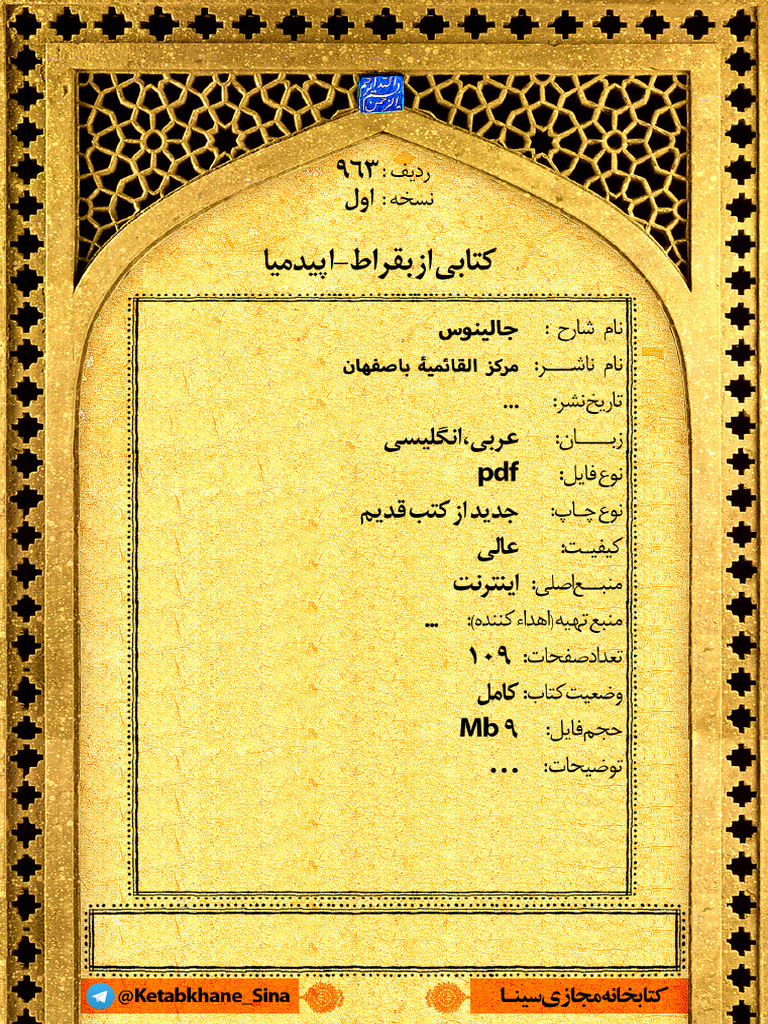 بسم الله الرحمن الرحیم
ردیف: ۹۶۳
نسخه: اول
کتابی از بقراط-اپیدمیا
نام شارح : جالینوس
نام ناشر: مرکز القائمیة باصفهان
تاریخ نشر: ...
زبان: عربی،انگلیسی
نوع فایل: pdf
نوع چاپ: جدید از کتب قدیم
کیفیت: عالی
منبع اصلی: اینترنت
منبع تهیه(اهداء کننده): ...
تعداد صفحات: ۱۰۹
وضعیت کتاب: کامل
حجم فایل: ۹ Mb
توضیحات: ...
کتابخانه مجازی سینا
@Ketabkhane_Sina